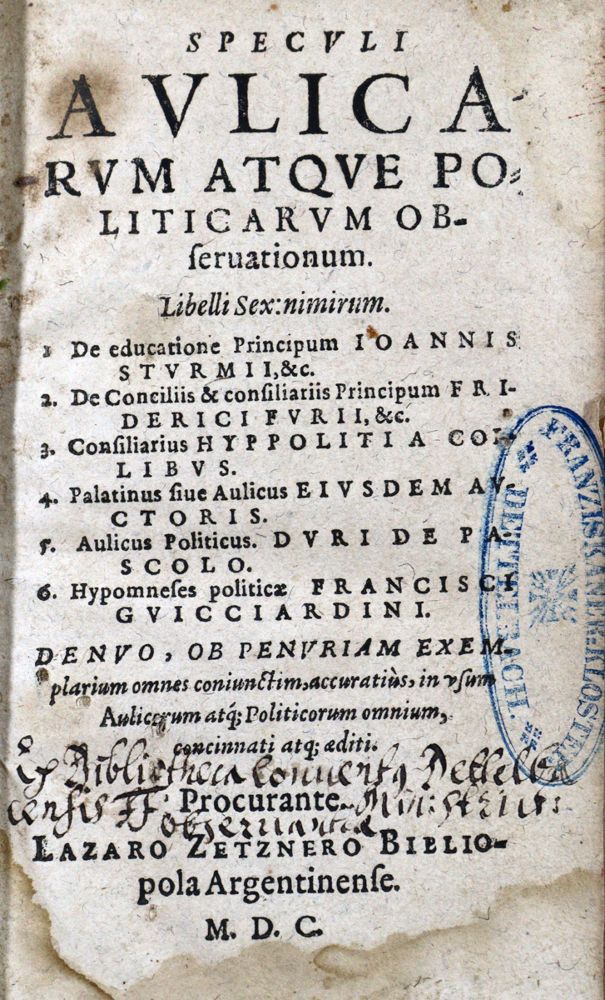 SPECVLI
AVLICA
RVM ATQVE PO-
LITICARVM OB-
ſeruationum.
Libelli Sex: nimirum.
1 De educatione Principum IOANNIS
STVRMII, &c.
2. De Conciliis & conſiliariis Principum FRI-
DERICI FVRII, &c.
3. Conſiliarius HYPPOLITI A COL-
LIBVS.
4. Palatinus ſiue Aulicus EIVSDEM AV-
CTORIS.
5. Aulicus Politicus. DVRI DE PA-
SCOLO.
6. Hypomneſes politicæ FRANCISCI
GVICCIARDINI.
DENVO, OB PENVRIAM EXEM-
plarium omnes coniunctim, accuratiùs, in vſum
Aulicorum atq; Politicorum omnium,
concinnati atq; æditi.
Ex Bibliotheca Conventus Dettelba
censis FF. Minorum
Procurante
observantiæ
LAZARO ZETZNERO BIBLIO-
pola Argentinenſe.
M. D. C.
FRANZISKANER-KLOSTER
DETTELBACH.